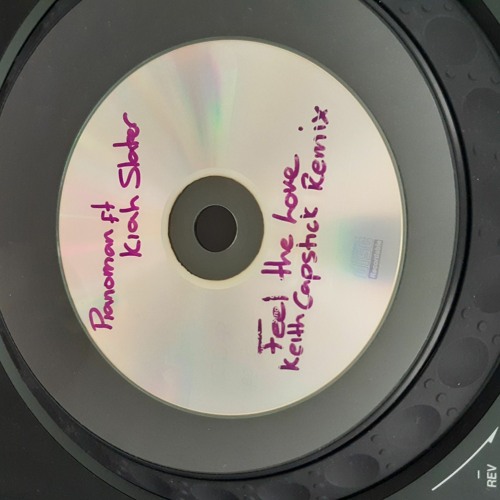 Pianoman ft
Kiah Slater
Feel the Love
Keith Capstick Remix
REV